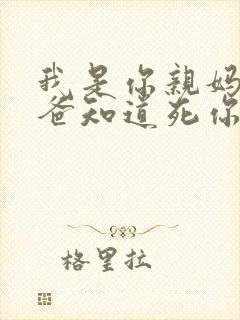 我是你親妈
爸知道死你
格里拉